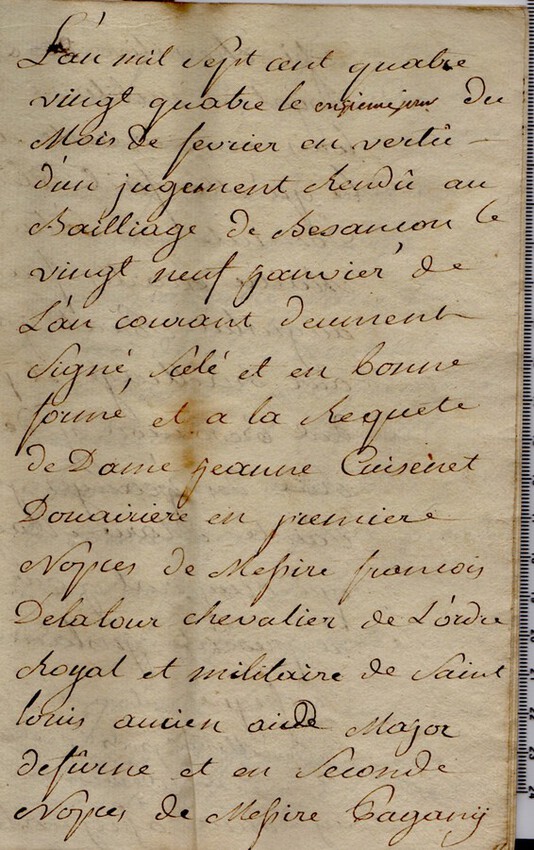 L'an mil sept cent quatre
vingt quatre le onzieme jour du
Mois de fevrier en vertû
d'un jugement Rendû au
Bailliage de Besançon le
vingt neuf janvier de
L'an courant deument
signé, Scelé et en bonne
forme, et a la Requete
de Dame jeanne Cuisenet
Douairiere en premiere
Nopces de Messire francois
Delatour chevalier de L'ordre
Royal et militaire de Saint
louis ancien aide Major
et en Seconde
Nopces de Messire Pagany